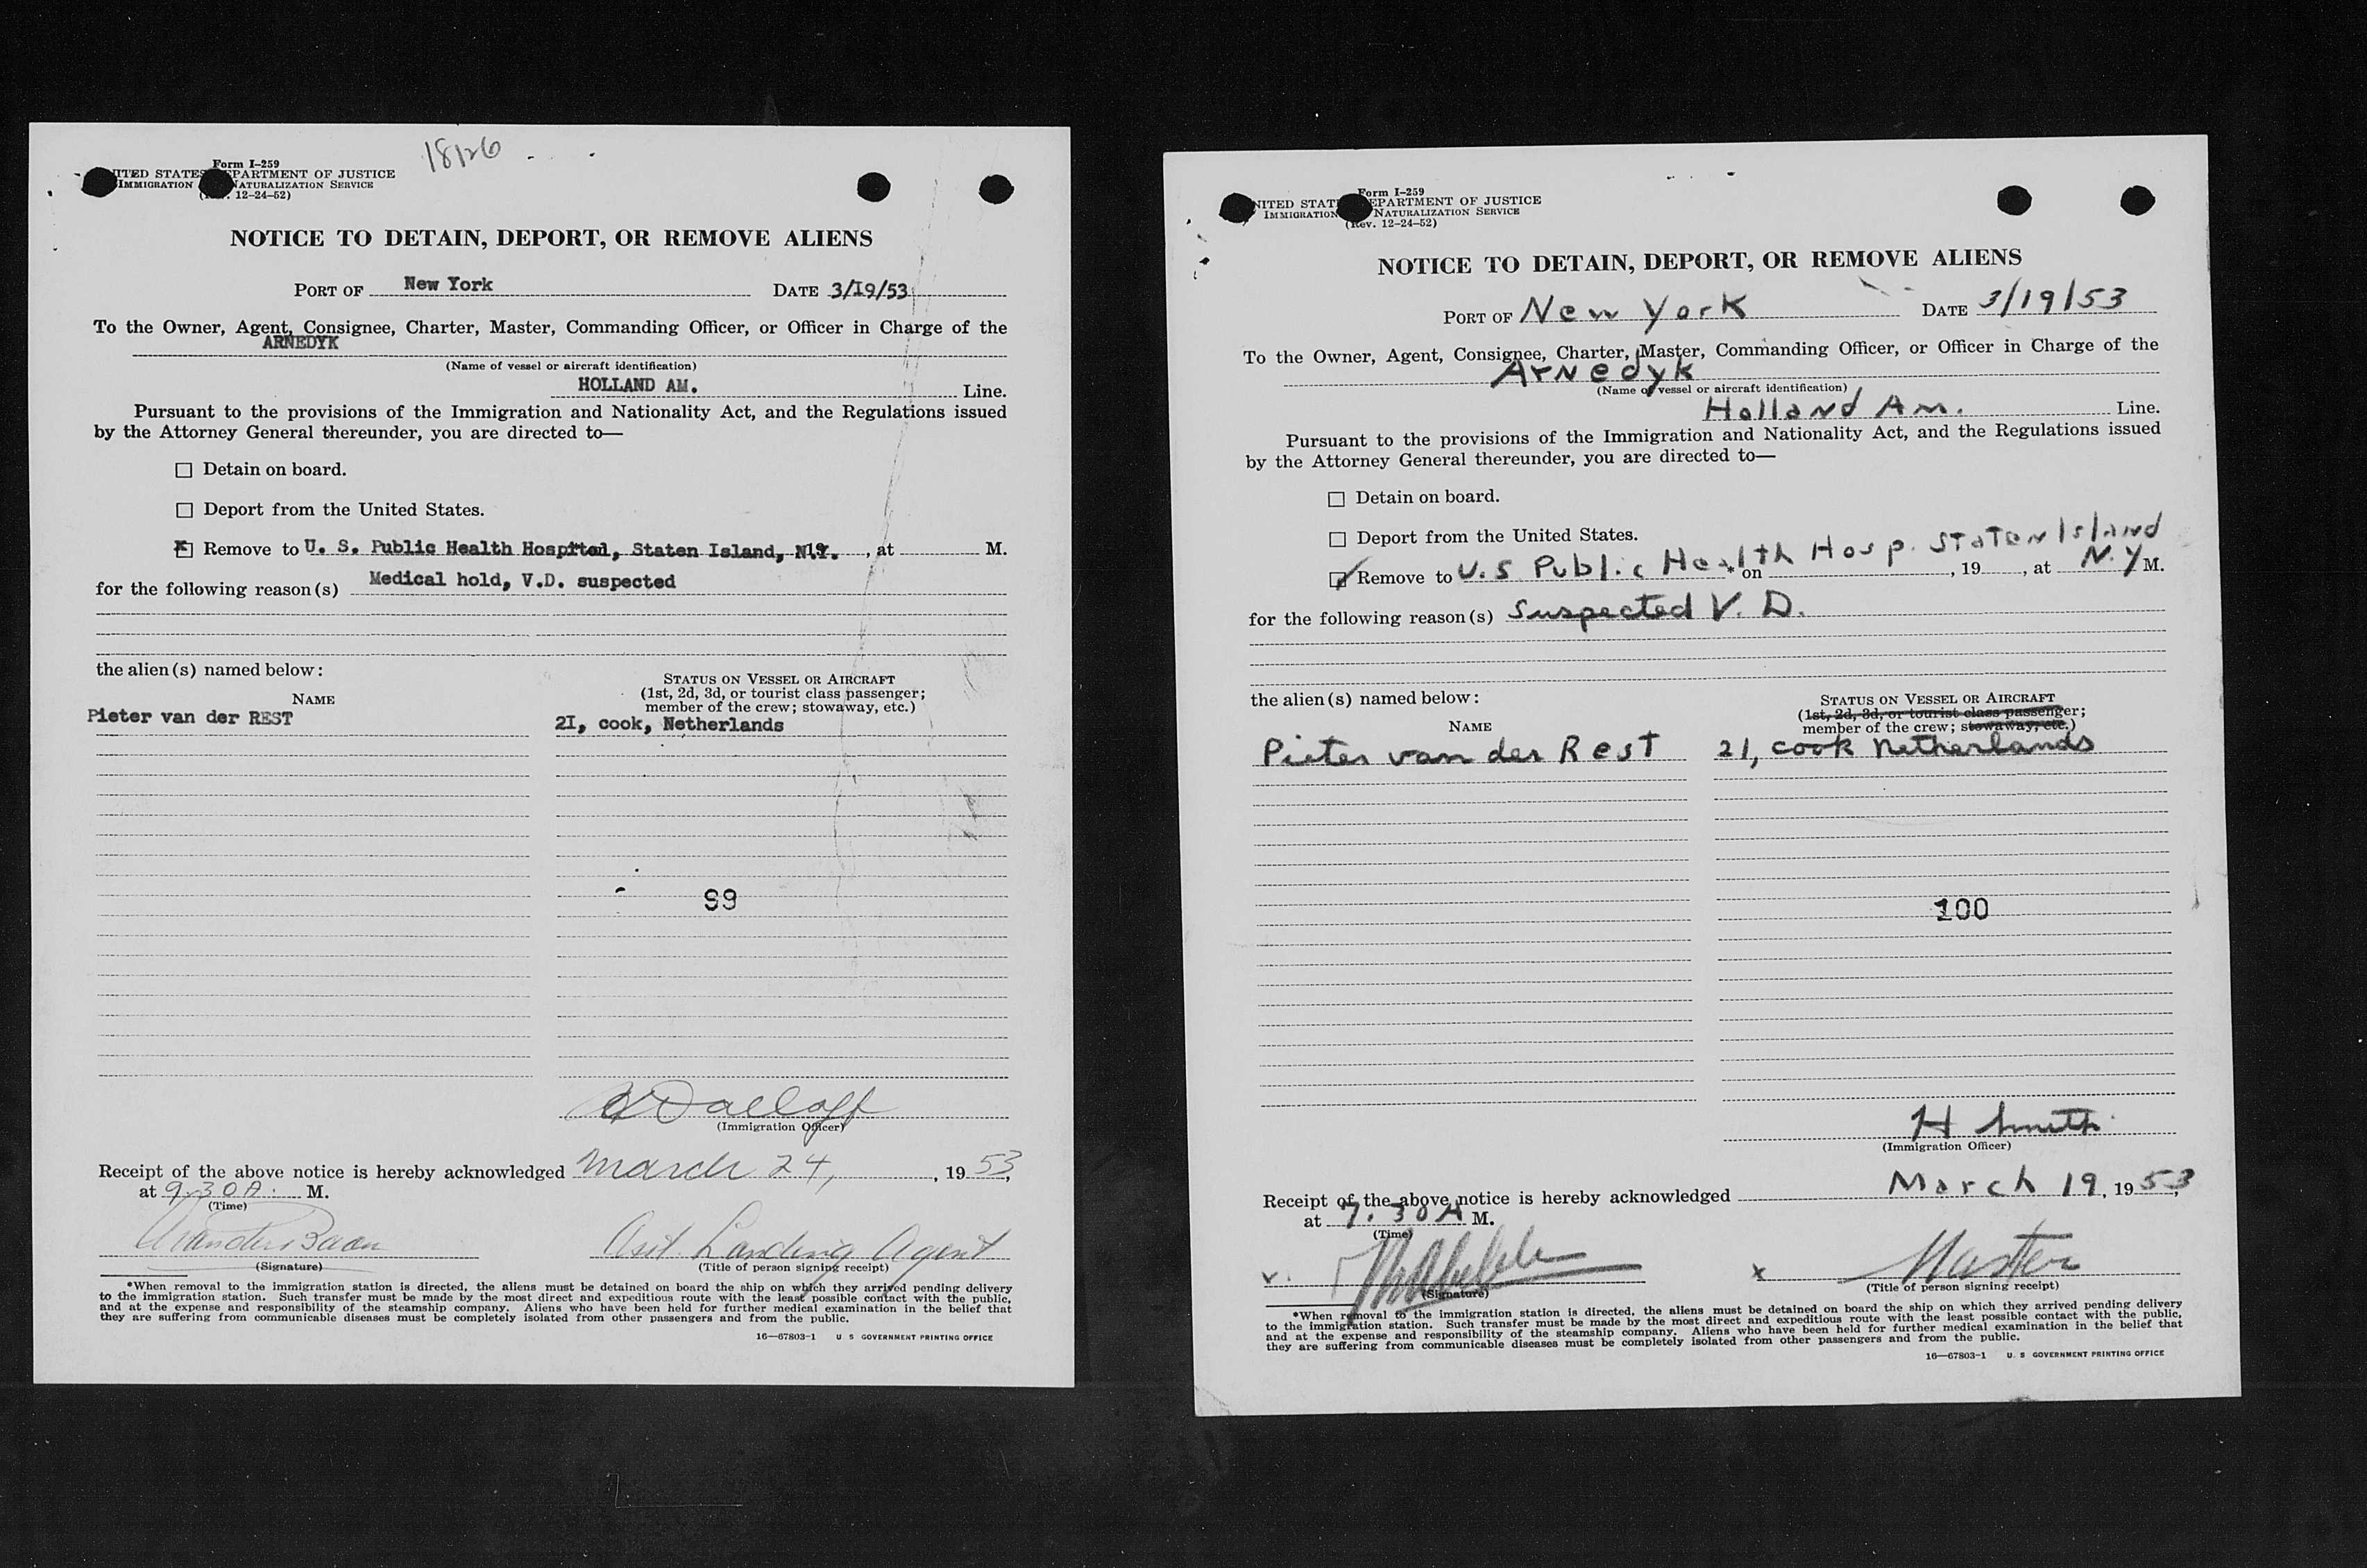 18126
Form I-259
UNITED STATES DEPARTMENT OF JUSTICE
IMMIGRATION NATURALIZATION SERVICE
12-24-52)
NOTICE TO DETAIN, DEPORT, OR REMOVE ALIENS
PORT OF New York DATE 3/I9/53
To the Owner, Agent, Consignee, Charter, Master, Commanding Officer, or Officer in Charge of the
ARNEDYK
(Name of vessel or aircraft identification)
HOLLAND AM. Line.
Pursuant to the provisions of the Immigration and Nationality Act, and the Regulations issued
by the Attorney General thereunder, you are directed to—
☐ Detain on board.
☐ Deport from the United States.
☒ Remove to U. S. Public Health Hospital, Staten Island, N.Y. , at M.
for the following reason(s) Medical hold, V.D. suspected
the alien(s) named below:
NAME
STATUS ON VESSEL OR AIRCRAFT
(1st, 2d, 3d, or tourist class passenger;
member of the crew; stowaway, etc.)
Pieter van der REST 2I, cook, Netherlands
99
(Immigration Officer)
Receipt of the above notice is hereby acknowledged March 24, , 19 53,
at 9.30 A. M.
(Time)
Asst. Landing Agent
(Signature) (Title of person signing receipt)
*When removal to the immigration station is directed, the aliens must be detained on board the ship on which they arrived pending delivery
to the immigration station. Such transfer must be made by the most direct and expeditious route with the least possible contact with the public,
and at the expense and responsibility of the steamship company. Aliens who have been held for further medical examination in the belief that
they are suffering from communicable diseases must be completely isolated from other passengers and from the public.
16—67803-1 U S GOVERNMENT PRINTING OFFICE
Form I-259
UNITED STATES DEPARTMENT OF JUSTICE
IMMIGRATION NATURALIZATION SERVICE
(Rev. 12-24-52)
NOTICE TO DETAIN, DEPORT, OR REMOVE ALIENS
PORT OF New York DATE 3/19/53
To the Owner, Agent, Consignee, Charter, Master, Commanding Officer, or Officer in Charge of the
Arnedyk
(Name of vessel or aircraft identification)
Holland Am. Line.
Pursuant to the provisions of the Immigration and Nationality Act, and the Regulations issued
by the Attorney General thereunder, you are directed to—
☐ Detain on board.
☐ Deport from the United States.
☑ Remove to U.S Public Health Hosp. Staten Island N.Y * on , 19 , at M.
for the following reason(s) Suspected V. D.
the alien(s) named below:
NAME
STATUS ON VESSEL OR AIRCRAFT
(1st, 2d, 3d, or tourist class passenger;
member of the crew; stowaway, etc.)
Pieter van der Rest 21, cook Netherlands
100
H Smith
(Immigration Officer)
Receipt of the above notice is hereby acknowledged March 19, 1953,
at 7.30 A M.
(Time)
v. x Master
(Signature) (Title of person signing receipt)
*When removal to the immigration station is directed, the aliens must be detained on board the ship on which they arrived pending delivery
to the immigration station. Such transfer must be made by the most direct and expeditious route with the least possible contact with the public,
and at the expense and responsibility of the steamship company. Aliens who have been held for further medical examination in the belief that
they are suffering from communicable diseases must be completely isolated from other passengers and from the public.
16—67803-1 U. S GOVERNMENT PRINTING OFFICE